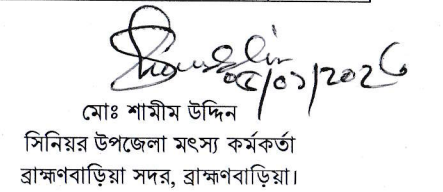 ০৫/০১/২০২৬
মোঃ শামীম উদ্দিন
সিনিয়র উপজেলা মৎস্য কর্মকর্তা
ব্রাহ্মণবাড়িয়া সদর, ব্রাহ্মণবাড়িয়া।